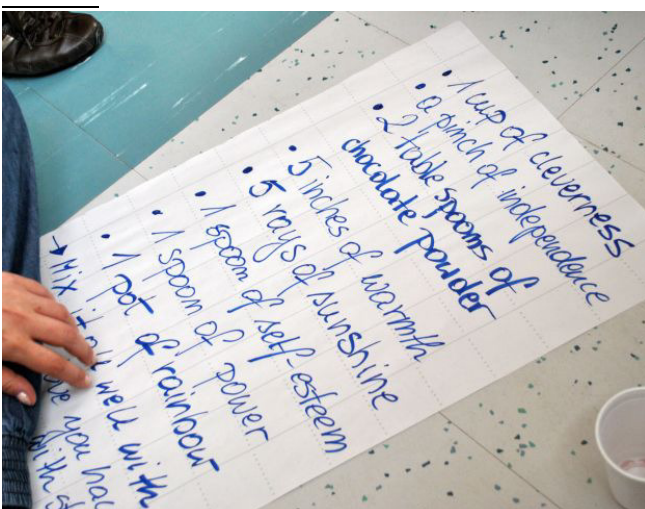 • 1 cup of cleverness
• a pinch of independence
• 2 table spooms of
chocolate powder
• 5 inches of warmth
• 5 rays of sunshine
• 1 spoom of self-esteem
• 1 spoon of power
• 1 pot of rainbow
→ Mix it well with
you
with